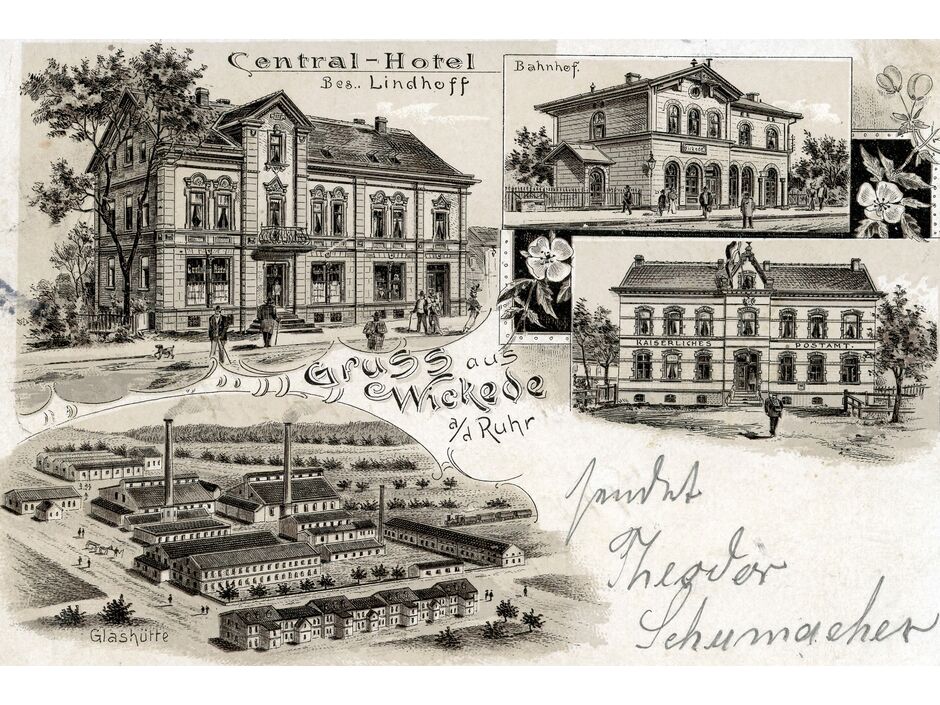 Central-Hotel
Bes.. Lindhoff
Bahnhof.
Wickede
Central Hotel
KAISERLICHES POSTAMT.
Gruss aus
Wickede
a/d Ruhr
Glashütte
sendet
Theodor
Schumacher